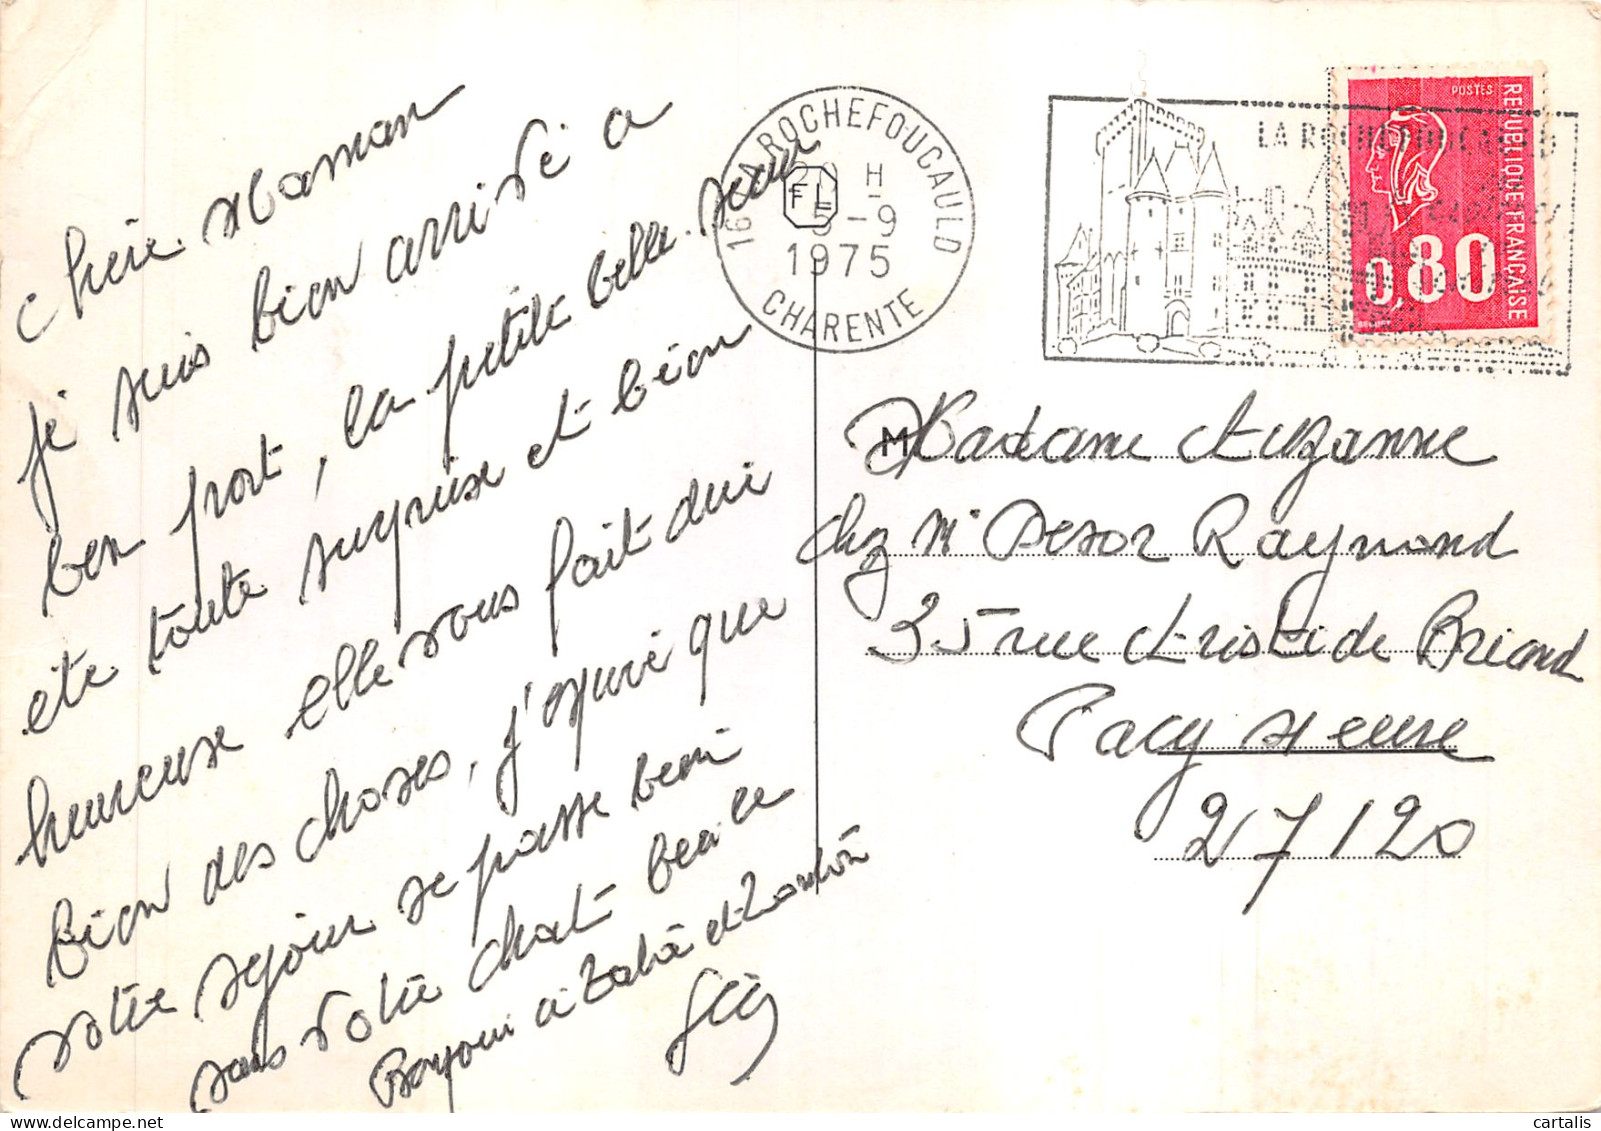 Chère Maman
Je suis bien arrivé a
bon port, la petite belle-sœur
été toute surprise et bien
heureuse elle vous fait dire
bien des choses, j'espère que
votre séjour se passe bien
sans votre chat
Bonjour a et Tonton
16 LA ROCHEFOUCAULD
20 H
FL
5-9
1975
CHARENTE
LA ROCHEFOUCAULD
POSTES
REPUBLIQUE FRANÇAISE
0,80
BEQUET
Madame Suzanne
chez Mr Raymond
35 rue Aristide Briand
Pacy s/ eure
27120
cartalis